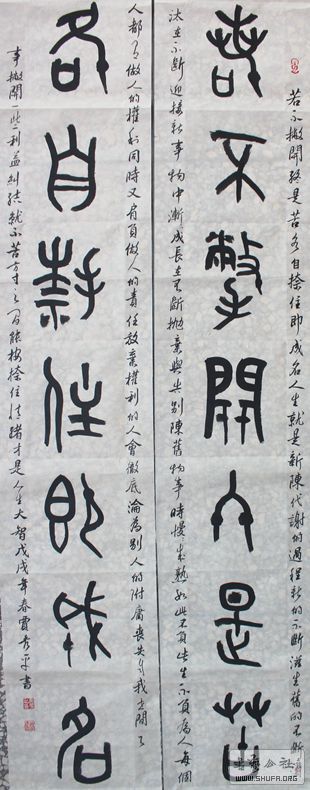 若不撇開終是苦各自捺住即成名人生就是新陳代謝的過程新的不斷滋生舊的不斷
若不撇開終是苦
汰在不斷迎接新事物中漸成長在不斷拋棄與告別陳舊物事時慢成熟如此不負此生不負為人每個
人都有做人的權利同時又肩負做人的責任放棄權利的人會徹底淪為別人的附庸喪失自我
各自捺住即成名
事撇開一些利益糾結就不苦方寸之間能按捺住情緒才是人生大智戊戌年春賈秀平書
WWW.SHUFA.ORG